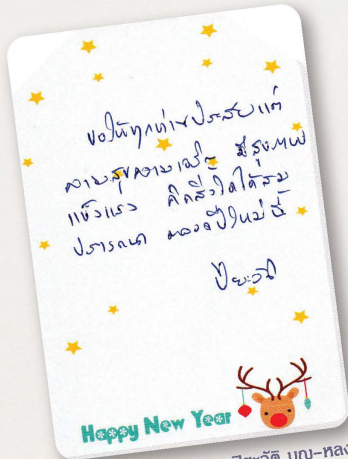 ขอให้ทุกท่านประสบแต่
ความสุขความเจริญ มีสุขภาพ
แข็งแรง คิดสิ่งใดได้สม
ปรารถนา ตลอดปีใหม่นี้
ปิยะวัติ
Happy New Year
ปิยะวัติ บุญ-หลง